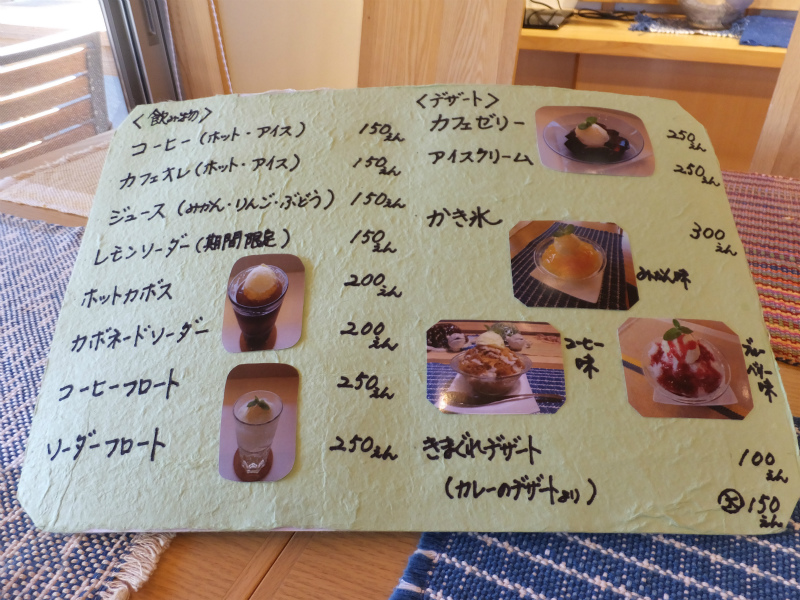 <飲み物>
コーヒー(ホット・アイス) 150えん
カフェオレ(ホット・アイス) 150えん
ジュース(みかん・りんご・ぶどう) 150えん
レモンソーダー(期間限定) 150えん
ホットカボス 200えん
カボネードソーダー 200えん
コーヒーフロート 250えん
ソーダーフロート 250えん
<デザート>
カフェゼリー 250えん
アイスクリーム 250えん
かき氷 300えん
みかん味
コーヒー味
ブルーベリー味
きまぐれデザート 100えん
(カレーのデザートより) 大150えん